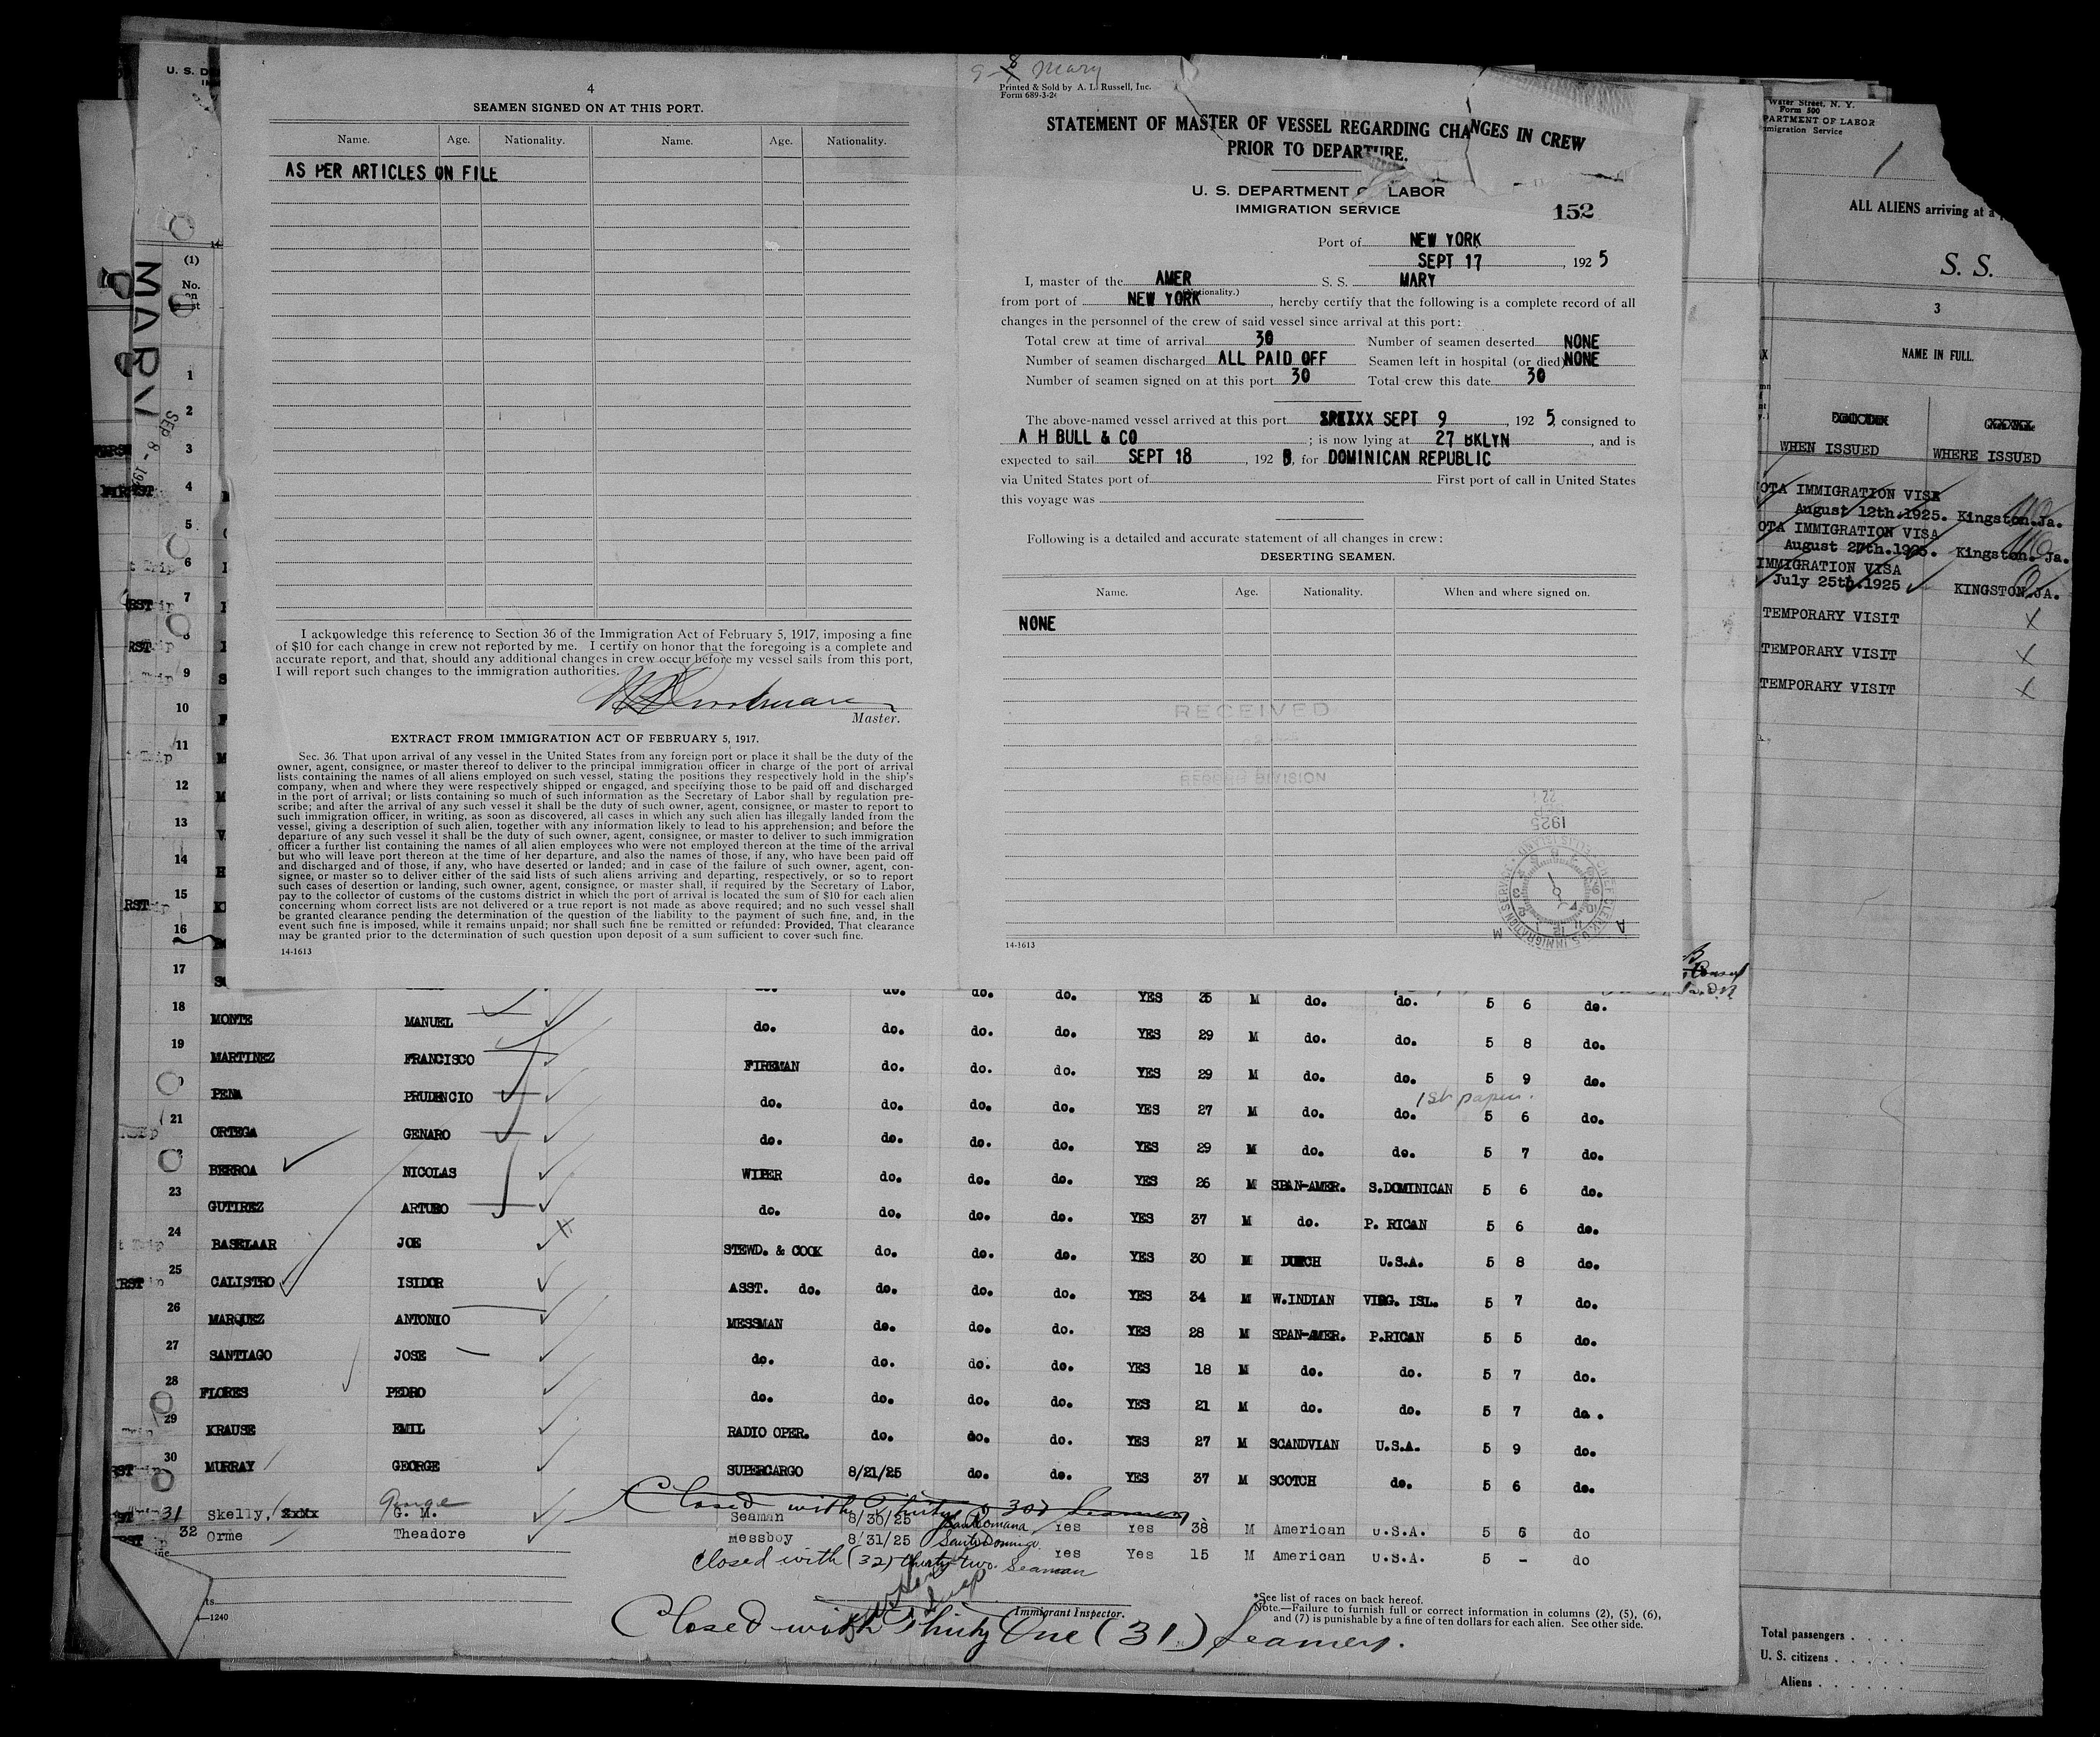 4
SEAMEN SIGNED ON AT THIS PORT.
Name. Age. Nationality. Name. Age. Nationality.
AS PER ARTICLES ON FILE
I acknowledge this reference to Section 36 of the Immigration Act of February 5, 1917, imposing a fine
of $10 for each change in crew not reported by me. I certify on honor that the foregoing is a complete and
accurate report, and that, should any additional changes in crew occur before my vessel sails from this port,
I will report such changes to the immigration authorities.
Master.
EXTRACT FROM IMMIGRATION ACT OF FEBRUARY 5, 1917.
Sec. 36. That upon arrival of any vessel in the United States from any foreign port or place it shall be the duty of the
owner, agent, consignee, or master thereof to deliver to the principal immigration officer in charge of the port of arrival
lists containing the names of all aliens employed on such vessel, stating the positions they respectively hold in the ship's
company, when and where they were respectively shipped or engaged, and specifying those to be paid off and discharged
in the port of arrival; or lists containing so much of such information as the Secretary of Labor shall by regulation pre-
scribe; and after the arrival of any such vessel it shall be the duty of such owner, agent, consignee, or master to report to
such immigration officer, in writing, as soon as discovered, all cases in which any such alien has illegally landed from the
vessel, giving a description of such alien, together with any information likely to lead to his apprehension; and before the
departure of any such vessel it shall be the duty of such owner, agent, consignee, or master to deliver to such immigration
officer a further list containing the names of all alien employees who were not employed thereon at the time of the arrival
but who will leave port thereon at the time of her departure, and also the names of those, if any, who have been paid off
and discharged and of those, if any, who have deserted or landed; and in case of the failure of such owner, agent, con-
signee, or master so to deliver either of the said lists of such aliens arriving and departing, respectively, or so to report
such cases of desertion or landing, such owner, agent, consignee, or master shall, if required by the Secretary of Labor,
pay to the collector of customs of the customs district in which the port of arrival is located the sum of $10 for each alien
concerning whom correct lists are not delivered or a true report is not made as above required; and no such vessel shall
be granted clearance pending the determination of the question of the liability to the payment of such fine, and, in the
event such fine is imposed, while it remains unpaid; nor shall such fine be remitted or refunded: Provided, That clearance
may be granted prior to the determination of such question upon deposit of a sum sufficient to cover such fine.
14-1613
Mary
Printed & Sold by A. L. Russell, Inc.
Form 689-3-24
STATEMENT OF MASTER OF VESSEL REGARDING CHANGES IN CREW
PRIOR TO DEPARTURE.
U. S. DEPARTMENT OF LABOR
IMMIGRATION SERVICE
152
Port of NEW YORK
SEPT 17, 1925
I, master of the AMER S. S. MARY
(Nationality.)
from port of NEW YORK, hereby certify that the following is a complete record of all
changes in the personnel of the crew of said vessel since arrival at this port:
Total crew at time of arrival 30 Number of seamen deserted NONE
Number of seamen discharged ALL PAID OFF Seamen left in hospital (or died) NONE
Number of seamen signed on at this port 30 Total crew this date 30
The above-named vessel arrived at this port SEPT 9, 1925, consigned to
A H BULL & CO; is now lying at 27 BKLYN, and is
expected to sail SEPT 18, 1925, for DOMINICAN REPUBLIC
via United States port of First port of call in United States
this voyage was
Following is a detailed and accurate statement of all changes in crew:
DESERTING SEAMEN.
Name. Age. Nationality. When and where signed on.
NONE
RECEIVED
RECORD DIVISION
1925
14-1613
MARY
SEP 8-
(1)
No.
1
2
3
4
5
6
7
8
9
10
11
12
13
14
15
16
17
do. do. do. do. YES 35 M do. do. 5 6 do.
18 MONTE MANUEL do. do. do. do. YES 29 M do. do. 5 8 do.
19 MARTINEZ FRANCISCO FIREMAN do. do. do. YES 29 M do. do. 5 9 do.
1st paper.
PENA PRUDENCIO do. do. do. do. YES 27 M do. do. 5 6 do.
21 ORTEGA GENARO do. do. do. do. YES 29 M do. do. 5 7 do.
BERROA NICOLAS WIPER do. do. do. YES 26 M SPAN-AMER. S.DOMINICAN 5 6 do.
23 GUTIREZ ARTURO do. do. do. do. YES 37 M do. P. RICAN 5 6 do.
24 BASELAAR JOE STEWD. & COOK do. do. do. YES 30 M DUTCH U.S.A. 5 8 do.
25 CALISTRO ISIDOR ASST. do. do. do. do. YES 34 M W.INDIAN VIRG. ISL. 5 7 do.
26 MARQUEZ ANTONIO MESSMAN do. do. do. YES 28 M SPAN-AMER. P.RICAN 5 5 do.
27 SANTIAGO JOSE do. do. do. do. YES 18 M do. do. 5 7 do.
28 FLORES PEDRO do. do. do. do. YES 21 M do. do. 5 7 do.
29 KRAUSE EMIL RADIO OPER. do. do. do. YES 27 M SCANDVIAN U.S.A. 5 9 do.
30 MURRAY GEORGE SUPERCARGO 8/21/25 do. do. YES 37 M SCOTCH do. 5 6 do.
Closed with Thirty (30) Seamen
31 Skelly, George G. M. Seaman 8/30/25 Yes Yes 38 M American U.S.A. 5 6 do
32 Orme Theadore Messboy 8/31/25 Santo Domingo Yes Yes 15 M American U.S.A. 5 - do
Closed with (32) thirty two Seaman
Immigrant Inspector.
Closed with Thirty One (31) Seamen.
*See list of races on back hereof.
Note.—Failure to furnish full or correct information in columns (2), (5), (6),
and (7) is punishable by a fine of ten dollars for each alien. See other side.
Water Street, N. Y.
Form 500
PARTMENT OF LABOR
migration Service
ALL ALIENS arriving at a
S. S.
3
NAME IN FULL.
WHEN ISSUED WHERE ISSUED
OTA IMMIGRATION VISA
August 12th.1925. Kingston.Ja.
OTA IMMIGRATION VISA
August 27th.1925. Kingston. Ja.
IMMIGRATION VISA
July 25th.1925 KINGSTON.JA.
TEMPORARY VISIT X
TEMPORARY VISIT X
TEMPORARY VISIT X
Total passengers
U. S. citizens
Aliens